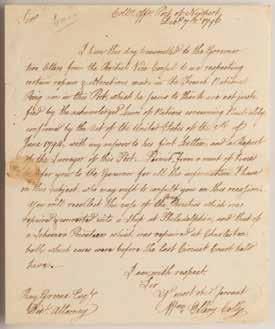 Coll.s Off. Port of Newport
Dec.r 7th 1796
Sir,
I have this day transmitted to the Governor
two Letters from the British Vice Consul to me respecting
certain repairs & alterations made in the French National
in this Port, which he seems to think are not justi
fied by the acknowledged Laws of Nations concerning Neutrality
confirmed by the Act of the United States of the 5th of
June 1794, with my answer to his first Letter and a Report
of the Surveyor of this Port. Permit from a want of time
to refer you to the Governor for all the information I have
on this subject, who may wish to consult you on this occasion.
You will recollect the case of the Brutus which was
repaired & converted into a Ship at Philadelphia, and that of
a Schooner Privateer which was repaired at Charleston
both which cases were before the last Circuit Court held
here.
I am with respect
Sir
Y.r most ob.t Servant
W.m Ellery Coll.r
Ray Greene Esq.r
Dis.t Attorney